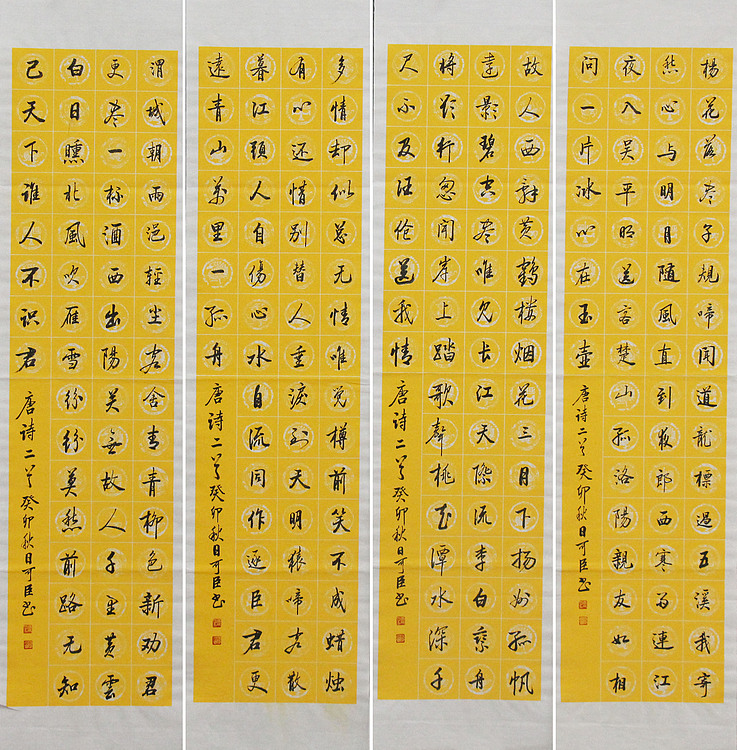 楊花落尽子規啼聞道龍標過五溪我寄
愁心与明月随風直到夜郎西寒雨連江
夜入吴平明送客楚山孤洛陽親友如相
問一片冰心在玉壺
唐诗二首癸卯秋日可臣书
故人西辞黄鶴楼烟花三月下扬州孤帆
遠影碧空尽唯見长江天際流李白乘舟
将欲行忽聞岸上踏歌聲桃花潭水深千
尺不及汪伦送我情
唐诗二首癸卯秋日可臣书
多情却似总无情唯觉樽前笑不成蜡烛
有心还惜别替人垂淚到天明猿啼客散
暮江頭人自傷心水自流同作逐臣君更
遠青山萬里一孤舟
唐诗二首癸卯秋日可臣书
渭城朝雨浥輕尘客舍青青柳色新劝君
更尽一杯酒西出陽关無故人千里黄雲
白日曛北風吹雁雪纷纷莫愁前路无知
己天下誰人不识君
唐诗二首癸卯秋日可臣书